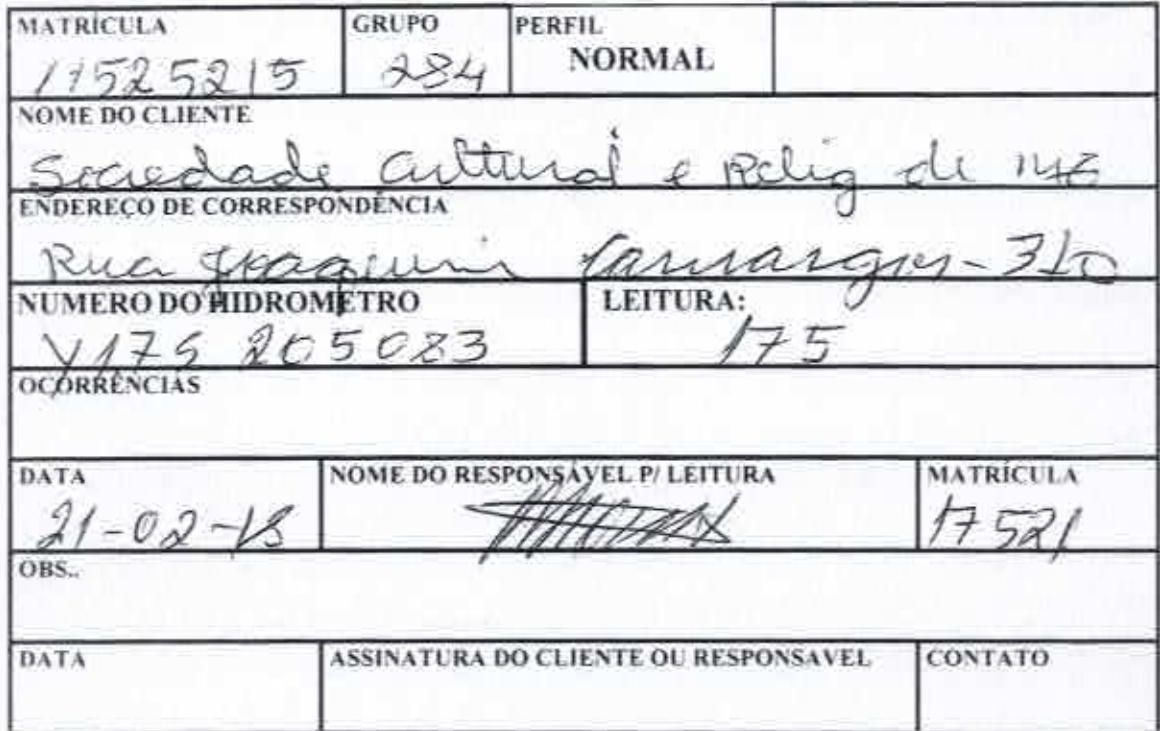 MATRÍCULA GRUPO PERFIL
11525215 284 NORMAL
NOME DO CLIENTE
Sociedade Cultural e Relig de
ENDEREÇO DE CORRESPONDÊNCIA
Rua Joaquim Camargos - 310
NUMERO DO HIDROMETRO LEITURA:
Y17S 205083 175
OCORRÊNCIAS
DATA NOME DO RESPONSÁVEL P/ LEITURA MATRÍCULA
21-02-18 17521
OBS..
DATA ASSINATURA DO CLIENTE OU RESPONSAVEL CONTATO